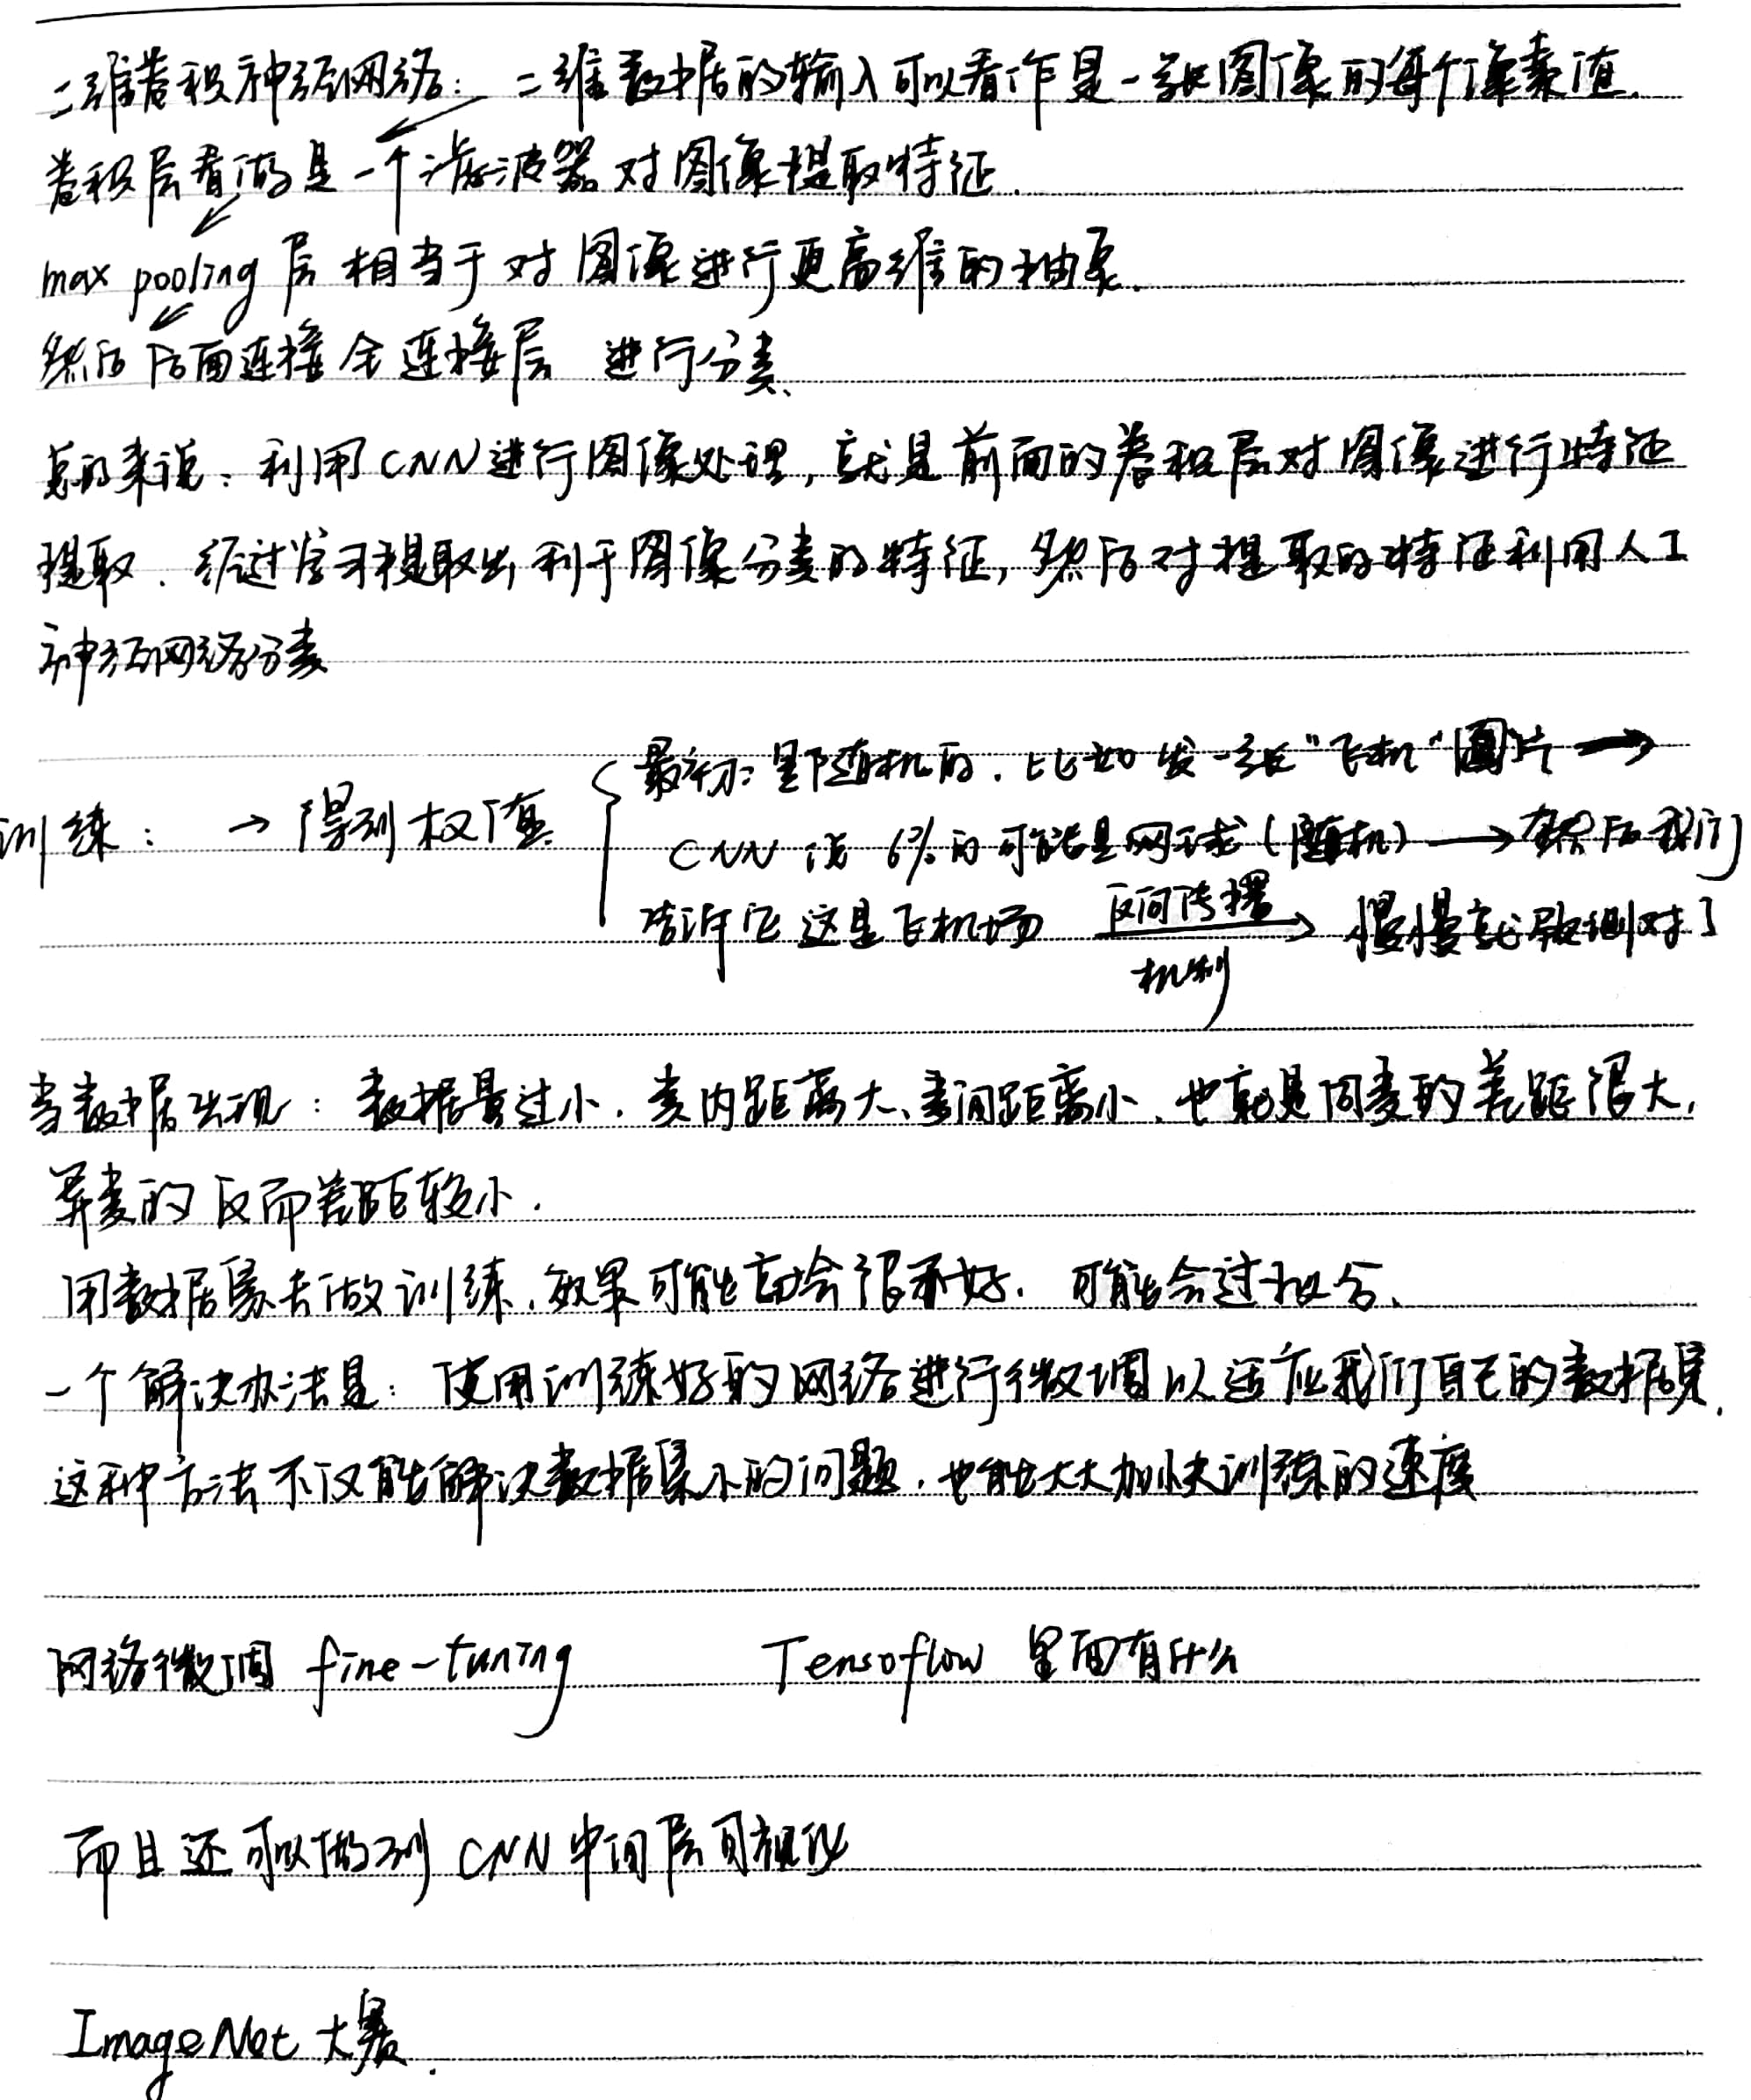 二维卷积神经网络：二维数据的输入可以看作是一张图像的每个像素值.
卷积层看做是一个滤波器对图像提取特征.
max pooling 层相当于对图像进行更高维的抽象.
然后后面连接全连接层 进行分类.
总的来说：利用CNN进行图像处理，就是前面的卷积层对图像进行特征
提取. 经过学习提取出利于图像分类的特征，然后对提取的特征利用人工
神经网络分类
训练： → 得到权值
最初: 是随机的. 比如 发一张“飞机”图片 →
CNN 说 6%的可能是网球(随机) → 然后我们
告诉它这是飞机场 反向传播 → 慢慢就 测对了
机制
当数据出现：数据量过小. 类内距离大、类间距离小. 也就是同类的差距很大,
异类的反而差距较小.
用数据集去做训练. 效果可能 会很不好. 可能会过拟合.
一个解决办法是：使用训练好的网络进行微调以适应我们自己的数据集.
这种方法不仅能解决数据集小的问题. 也能大大加快训练的速度
网络微调 fine-tuning Tensoflow 里面有什么
而且还可以做到 CNN 中间层可视化
ImageNet 大赛.